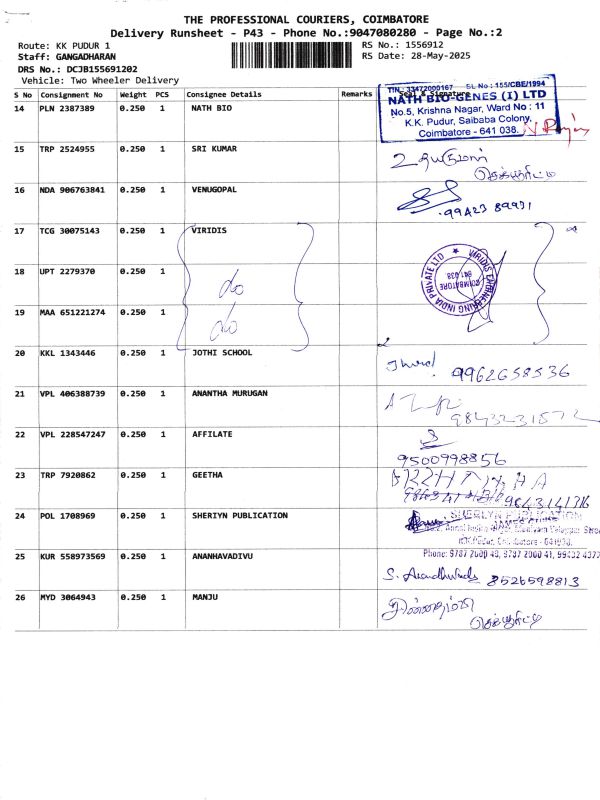 THE PROFESSIONAL COURIERS, COIMBATORE
Delivery Runsheet - P43 - Phone No.:9047080280 - Page No.:2
Route: KK PUDUR 1
RS No.: 1556912
Staff: GANGADHARAN
RS Date: 28-May-2025
DRS No.: DCJB155691202
Vehicle: Two Wheeler Delivery
S No Consignment No Weight PCS Consignee Details Remarks Seal & Signature
TIN: 33472000167 SL No : 155/CBE/1994
NATH BIO-GENES (I) LTD
No.5, Krishna Nagar, Ward No : 11
K.K. Pudur, Saibaba Colony,
Coimbatore - 641 038.
14 PLN 2387389 0.250 1 NATH BIO
15 TRP 2524955 0.250 1 SRI KUMAR
செக்யூரிட்டி
16 NDA 906763841 0.250 1 VENUGOPAL
99423 89931
17 TCG 30075143 0.250 1 VIRIDIS
VIRIDIS ENGINEERING INDIA PRIVATE LTD
COIMBATORE
641 038
18 UPT 2279370 0.250 1 do
19 MAA 651221274 0.250 1 do
20 KKL 1343446 0.250 1 JOTHI SCHOOL
9962658536
21 VPL 406388739 0.250 1 ANANTHA MURUGAN
22 VPL 228547247 0.250 1 AFFILATE
9500998856
23 TRP 7920862 0.250 1 GEETHA
9643141316
24 POL 1708969 0.250 1 SHERIYN PUBLICATION
SHERLYN PUBLICATION
K.K.Pudur, Coimbatore - 641038.
25 KUR 558973569 0.250 1 ANANHAVADIVU
S. Anandhavadivu 8526598813
26 MYD 3064943 0.250 1 MANJU
செக்யூரிட்டி